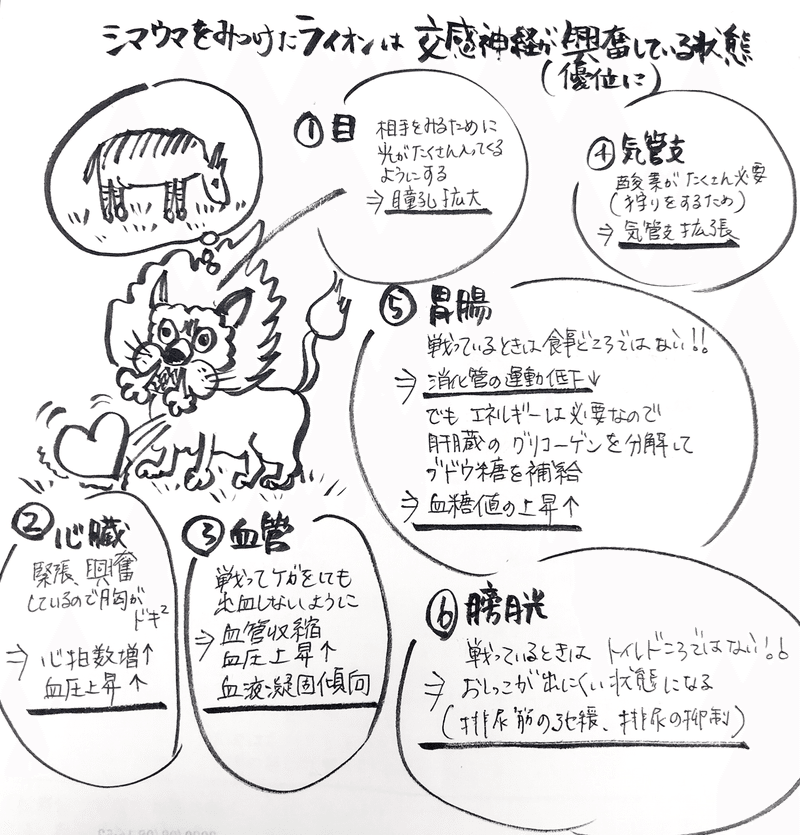 シマウマをみつけたライオンは 交感神経が興奮している状態
(優位に)
① 目
相手をみるために
光がたくさん入ってくる
ようにする
⇒ 瞳孔拡大
④ 気管支
酸素がたくさん必要
(狩りをするため)
⇒ 気管支拡張
⑤ 胃腸
戦っているときは食事どころではない!!
⇒ 消化管の運動低下↓
でも エネルギーは必要なので
肝臓の グリコーゲンを分解して
ブドウ糖を補給
⇒ 血糖値の上昇↑
② 心臓
緊張、興奮
しているので胸が
ドキ²
⇒ 心拍数増↑
血圧上昇↑
③ 血管
戦ってケガをしても
出血しないように
⇒ 血管収縮
血圧上昇↑
血液凝固傾向
⑥ 膀胱
戦っているときは トイレどころではない!!
⇒ おしっこが出にくい状態になる
(排尿筋の弛緩、排尿の抑制)